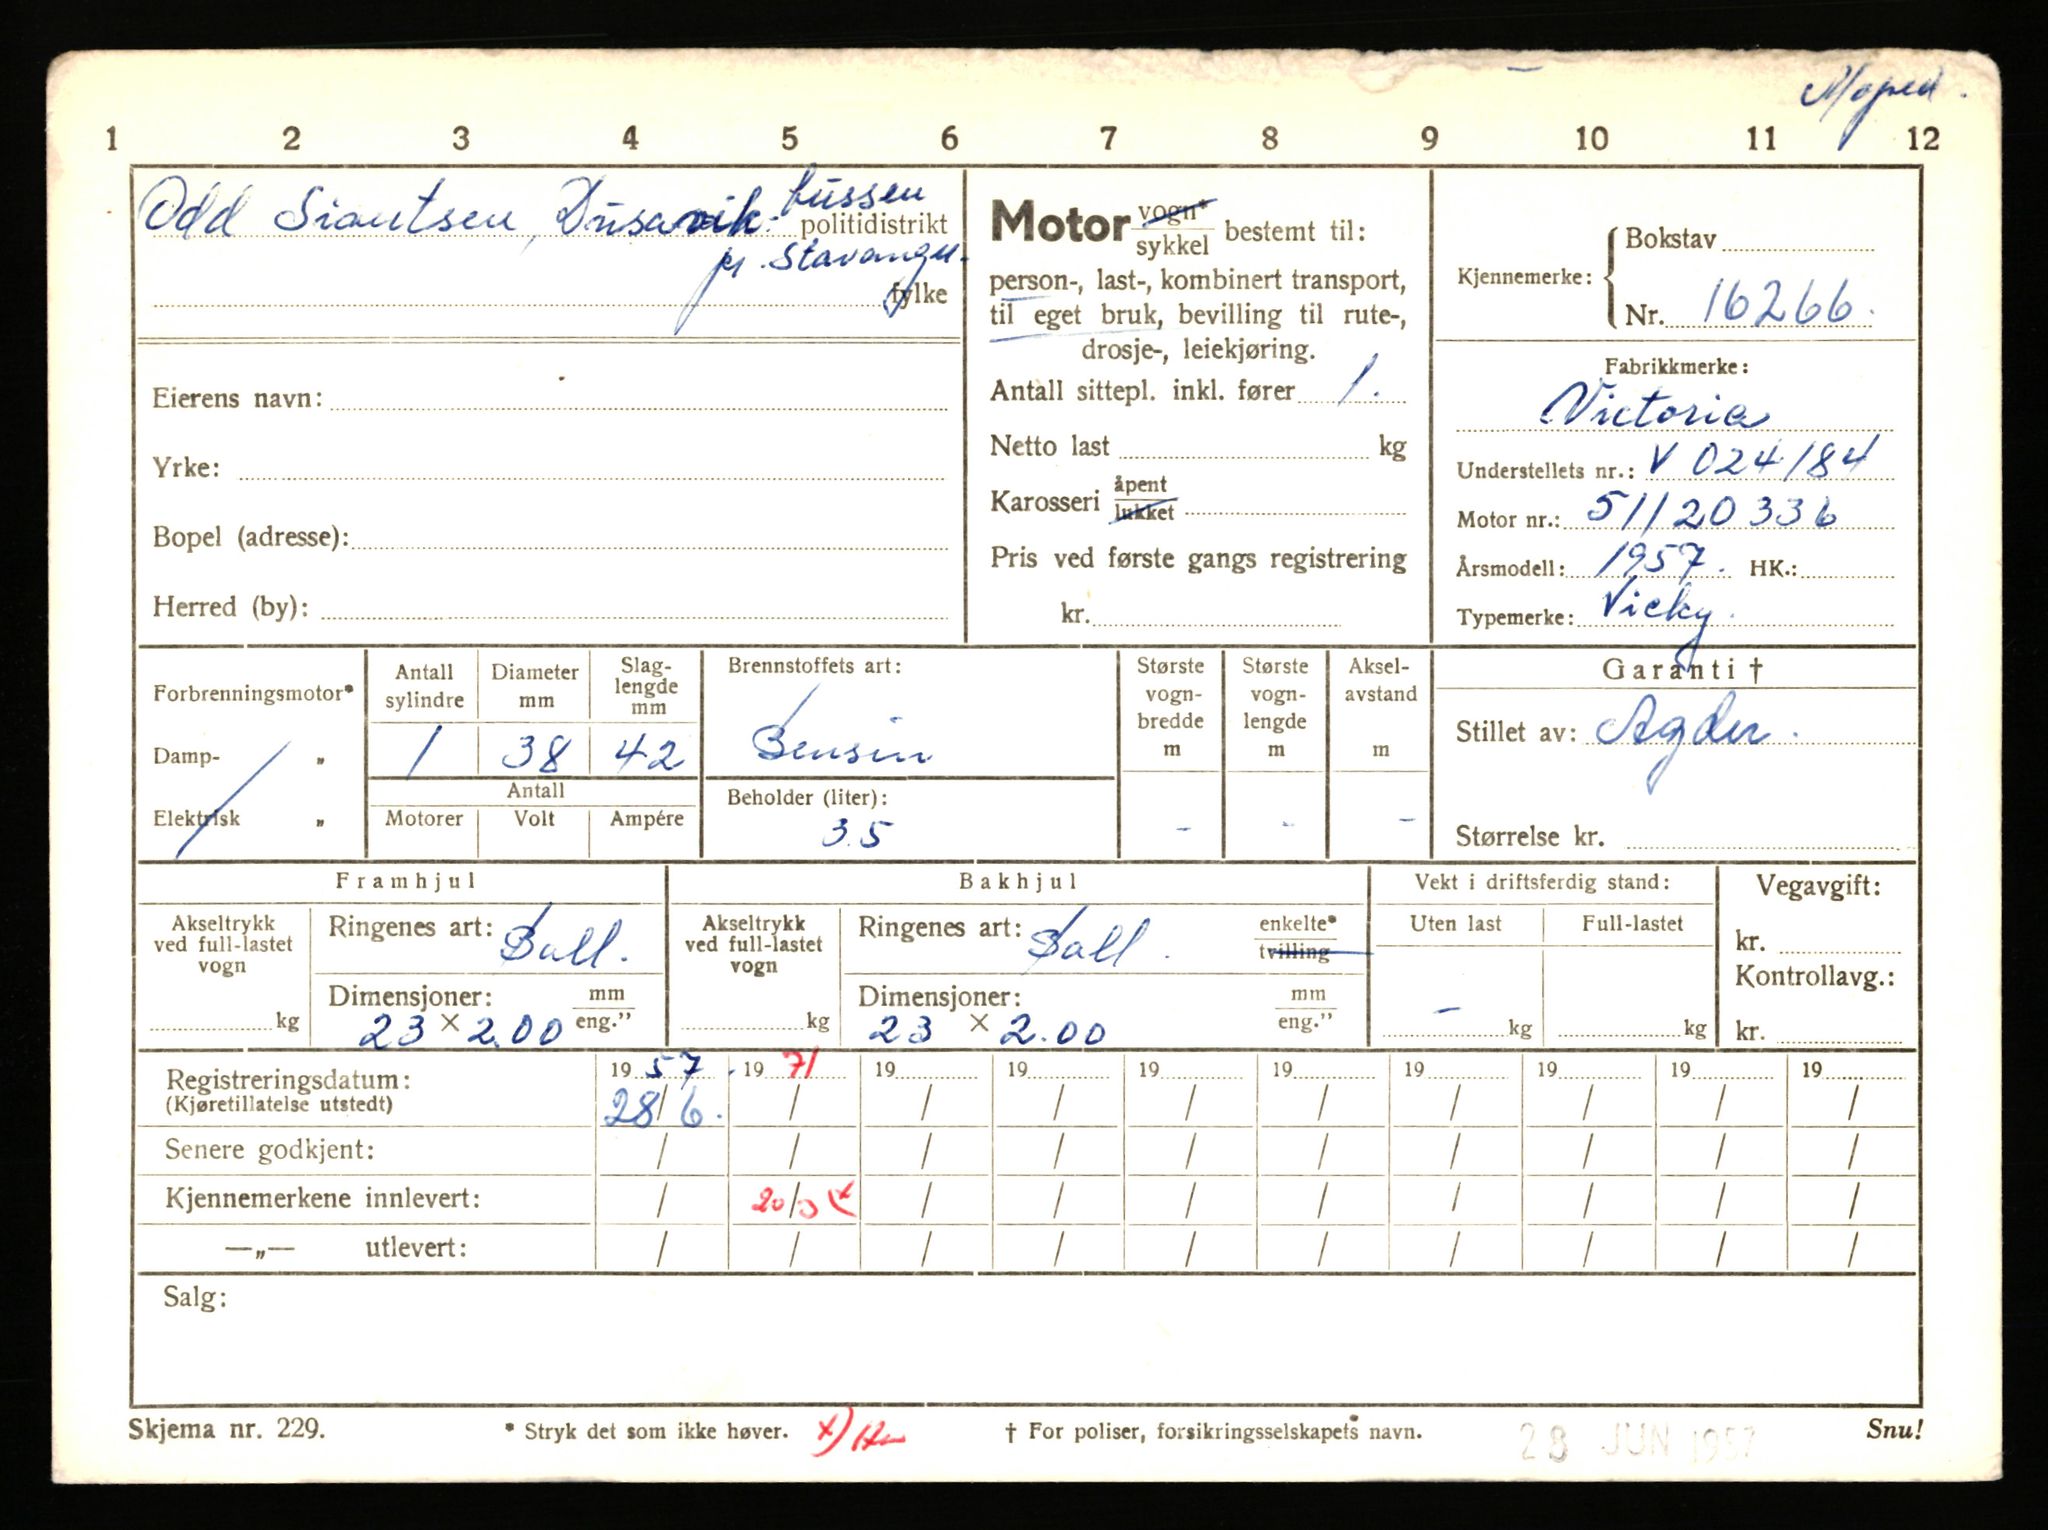 Moped.
1 2 3 4 5 6 7 8 9 10 11 12
Odd Siqutsen, Dusavik. bussen
politidistrikt
pr. Stavanger.
fylke
Eierens navn:
Yrke:
Bopel (adresse):
Herred (by):
Motor vogn* sykkel bestemt til:
person-, last-, kombinert transport,
til eget bruk, bevilling til rute-,
drosje-, leiekjøring.
Antall sittepl. inkl. fører 1.
Netto last kg
Karosseri åpent lukket
Pris ved første gangs registrering
kr.
Kjennemerke: Bokstav
Nr. 16266.
Fabrikkmerke:
Victoria
Understellets nr.: V 024184
Motor nr.: 51120336
Årsmodell: 1957. HK.:
Typemerke: Vicky.
Forbrenningsmotor*
Damp- „
Elektrisk „
Antall sylindre Diameter mm Slag-lengde mm
1 38 42
Antall
Motorer Volt Ampére
Brennstoffets art:
Bensin
Beholder (liter):
3.5
Største vogn-bredde m
Største vogn-lengde m
Aksel-avstand m
- - -
Garanti †
Stillet av: Agder.
Størrelse kr.
Framhjul
Akseltrykk ved full-lastet vogn
kg
Ringenes art: Ball.
Dimensjoner: mm eng."
23 × 2.00
Bakhjul
Akseltrykk ved full-lastet vogn
kg
Ringenes art: Ball. enkelte* tvilling
Dimensjoner: mm eng."
23 × 2.00
Vekt i driftsferdig stand:
Uten last Full-lastet
- kg kg
Vegavgift:
kr.
Kontrollavg.:
kr.
Registreringsdatum: 19 57 19 71 19 19 19 19 19 19 19 19
(Kjøretillatelse utstedt) 28/6. / / / / / / / / /
Senere godkjent: / / / / / / / / / /
Kjennemerkene innlevert: / 20/3 x / / / / / / / /
—„— utlevert: / / / / / / / / / /
Salg:
Skjema nr. 229. * Stryk det som ikke høver. x) † For poliser, forsikringsselskapets navn. 28 JUN 1957 Snu!